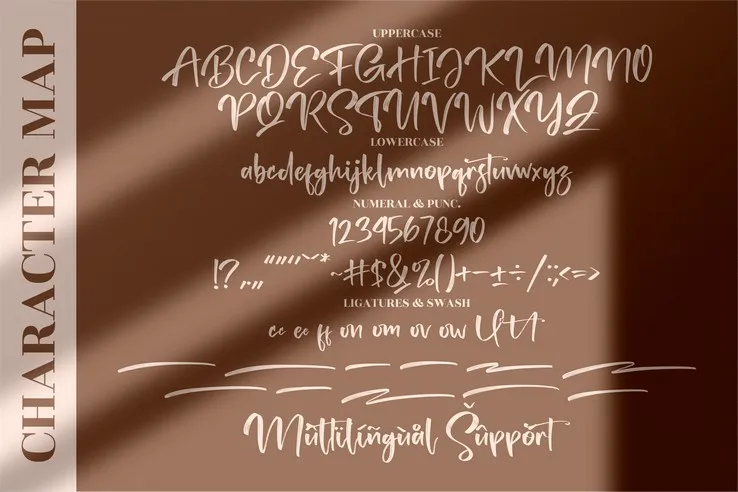 CHARACTER MAP
UPPERCASE
ABCDEFGHIJKLMNO
PQRSTUVWXYZ
LOWERCASE
abcdefghijklmnopqrstuvwxyz
NUMERAL & PUNC.
1234567890
~#$&%()+-±÷/:;<=>
LIGATURES & SWASH
cc ee ff on om ov ow
Mùltïlíñgùàl Šûppört